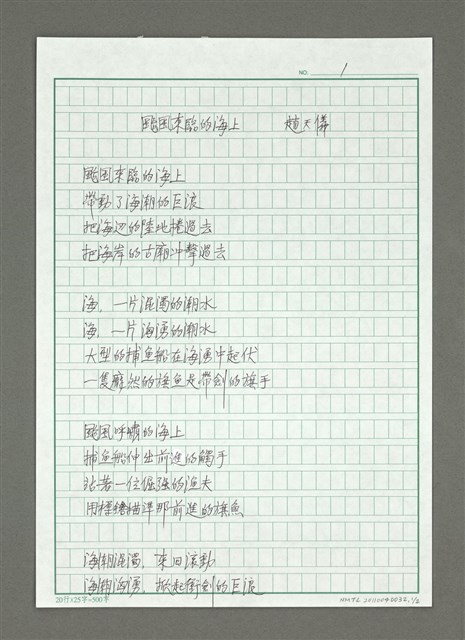 NO: 1
颱風來臨的海上 趙天儀
颱風來臨的海上
帶動了海潮的巨浪
把海边的陸地捲過去
把海岸的古廟冲擊過去
海，一片混濁的潮水
海，一片洶湧的潮水
大型的捕魚船在海湧中起伏
一隻龐然的旗魚是帶劍的旗手
颱風呼嘯的海上
捕魚船伸出前進的觸手
站着一位倔强的漁夫
用標鎗描準那前進的旗魚
海潮混濁，來回滾動
海潮洶湧，掀起衝刺的巨浪
20行×25字=500字